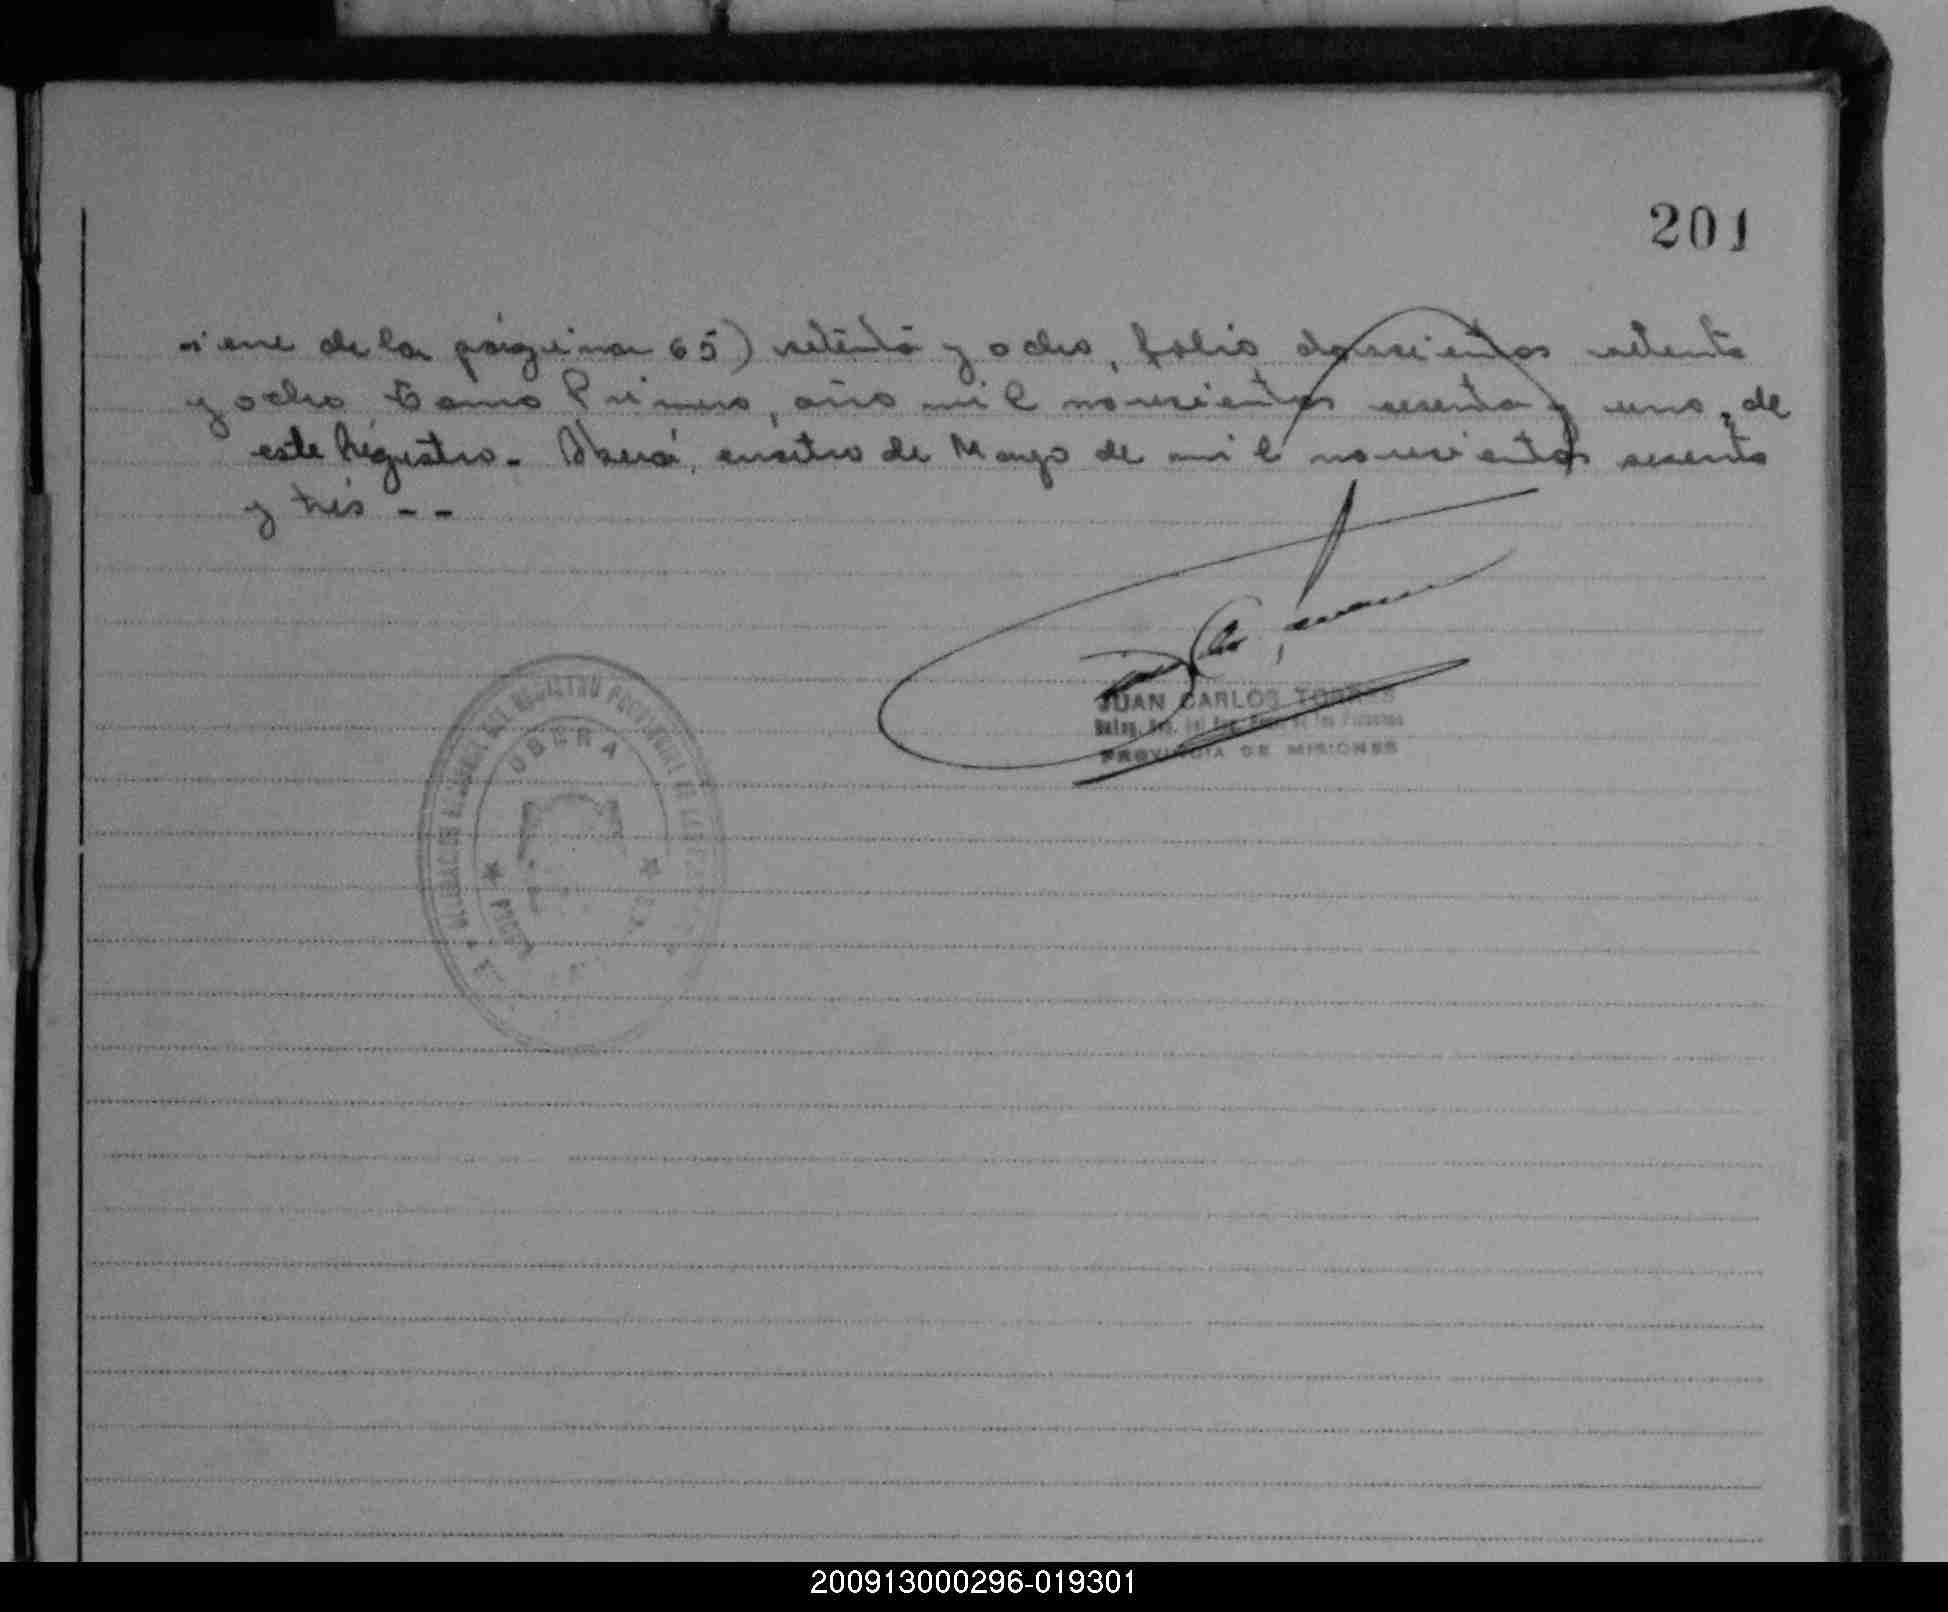 201
viene de la página 65) setenta y ocho, folio doscientos setenta
y ocho Tomo Primero, año mil novecientos sesenta y uno, de
este Registro. Oberá, cuatro de Mayo de mil novecientos sesenta
y trés - -
JUAN CARLOS TORRES
PROVINCIA DE MISIONES
DEL REGISTRO PROVINCIAL DE LAS
OBERA
200913000296-019301